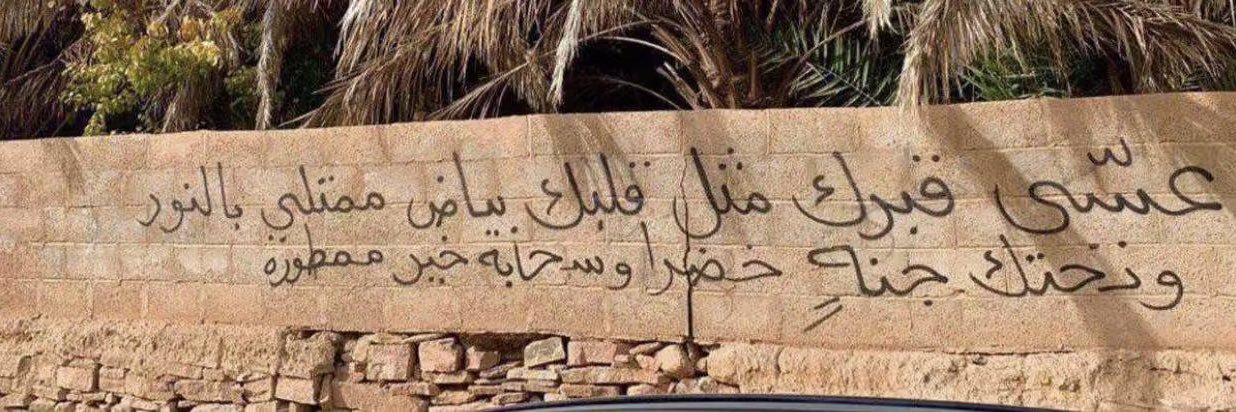 عسّى قبرك مثل قلبك بياض ممتلي بالنور
وتحتك جنةٍ خضرا وسحابه خير ممطوره